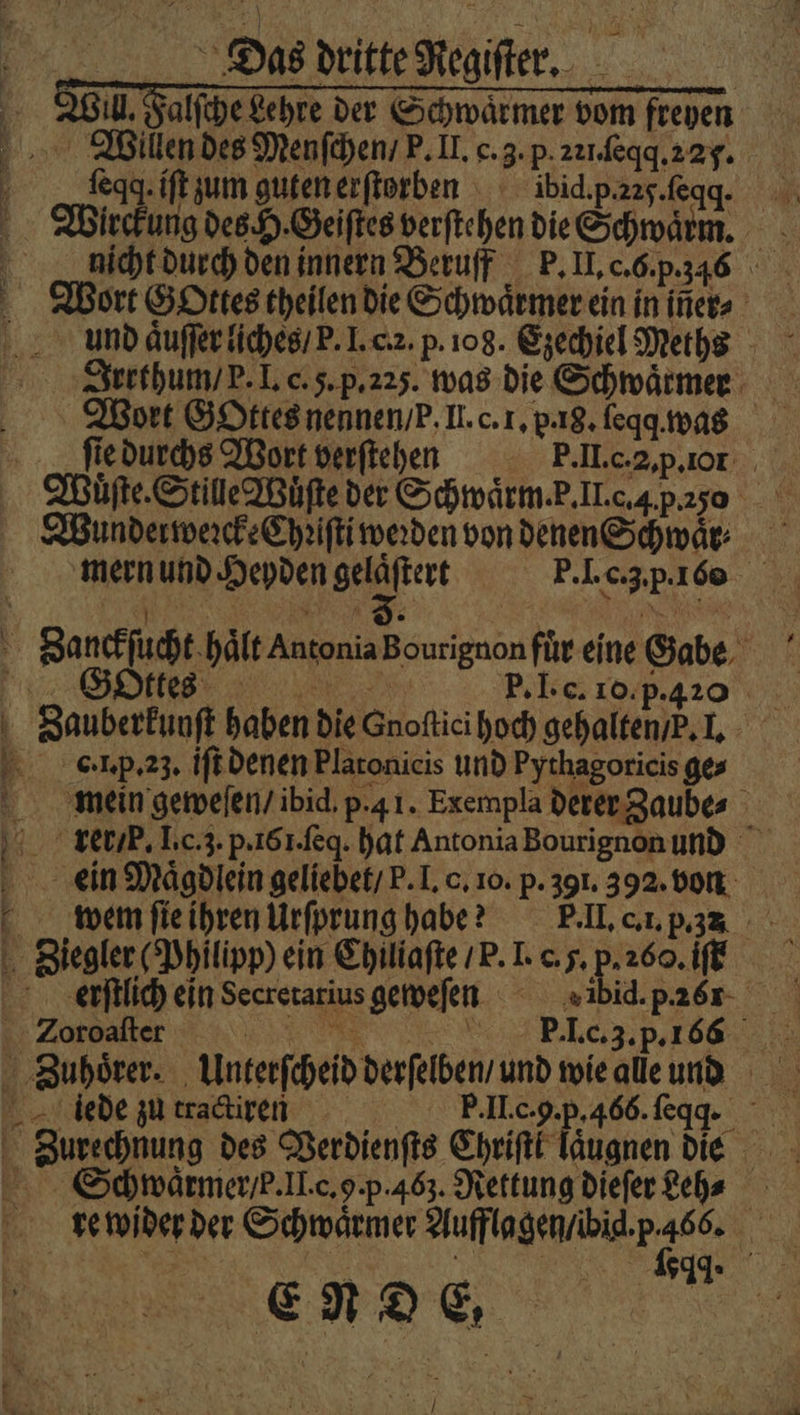 Das dritte Regiſter.
Will. Falſche Lehre der Schwaͤrmer vom freyen
Willen des Menſchen/ P. II. c. 3. p. 221. ſeqq. 225.
ſeqq. iſt zum guten erſtorben ibid. p. 225. ſeqq.
Wirckung des H. Geiſtes verſtehen die Schwaͤrm.
nicht durch den innern Beruff P. II, c. 6. p. 346
Wort GOttes theilen die Schwaͤrmer ein in iñer⸗
und aͤuſſerliches/ P. I. c. 2. p. 108. Ezechiel Meths
Irrthum/ P. I. c. 5. p. 225. was die Schwaͤrmer
Wort GOttes nennen/ P. II. c. 1, p. 18. ſeqq. was
ſie durchs Wort verſtehen P. II. c. 2, p. 101
Wuͤſte. Stille Wuͤſte der Schwaͤrm. P. II. c. 4. p. 250
Wunderwercke Chriſti werden von denen Schwaͤr⸗
mern und Heyden gelaͤſtert P. I. c. 3. p. 160
Z.
Zanckſucht haͤlt Antonia Bourignon fuͤr eine Gabe
GOttes P. I. c. 10. p. 420
Zauberkunſt haben die Gnoſtici hoch gehalten/ P. I.
c. 1. p. 23. iſt denen Platonicis und Pythagoricis ge⸗
mein geweſen/ ibid. p. 41. Exempla derer Zaube⸗
rer/ P. I. c. 3. p. 161. ſeq. hat Antonia Bourignon und
ein Maͤgdlein geliebet/ P. I. c. 10. p. 391. 392. von
wem ſie ihren Urſprung habe? P. II, c. 1. p. 32
Ziegler (Philipp) ein Chiliaſte / P. I. c. 5. p. 260. iſt
erſtlich ein Secretarius geweſen ibid. p. 261
Zoroaſter P. I. c. 3. p. 166
Zuhoͤrer. Unterſcheid derſelben/ und wie alle und
iede zu tractiren P. II. c. 9. p. 466. ſeqq.
Zurechnung des Verdienſts Chriſti laͤugnen die
Schwaͤrmer/ P. II. c. 9. p. 463. Rettung dieſer Leh⸗
re wider der Schwaͤrmer Aufflagen/ ibid. p. 466.
ſeqq.
ENDE,